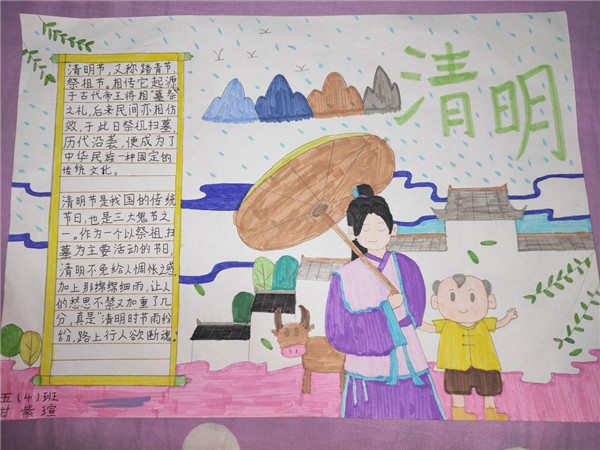 清明
清明节,又称踏青节、
祭祖节。相传它起源
于古代帝王将相墓祭
之礼,后来民间亦相仿
效,于此日祭祖扫墓,
历代沿袭,便成为了
中华民族一种固定的
传统文化。
清明节是我国的传统
节日,也是三大鬼节之
一。作为一个以祭祖扫
墓为主要活动的节日,
清明不免给人惆怅之感,
加上那绵绵细雨,让人
的愁思不禁又加重了几
分,真是“清明时节雨纷
纷,路上行人欲断魂。
五(4)班
甘 紫 瑄